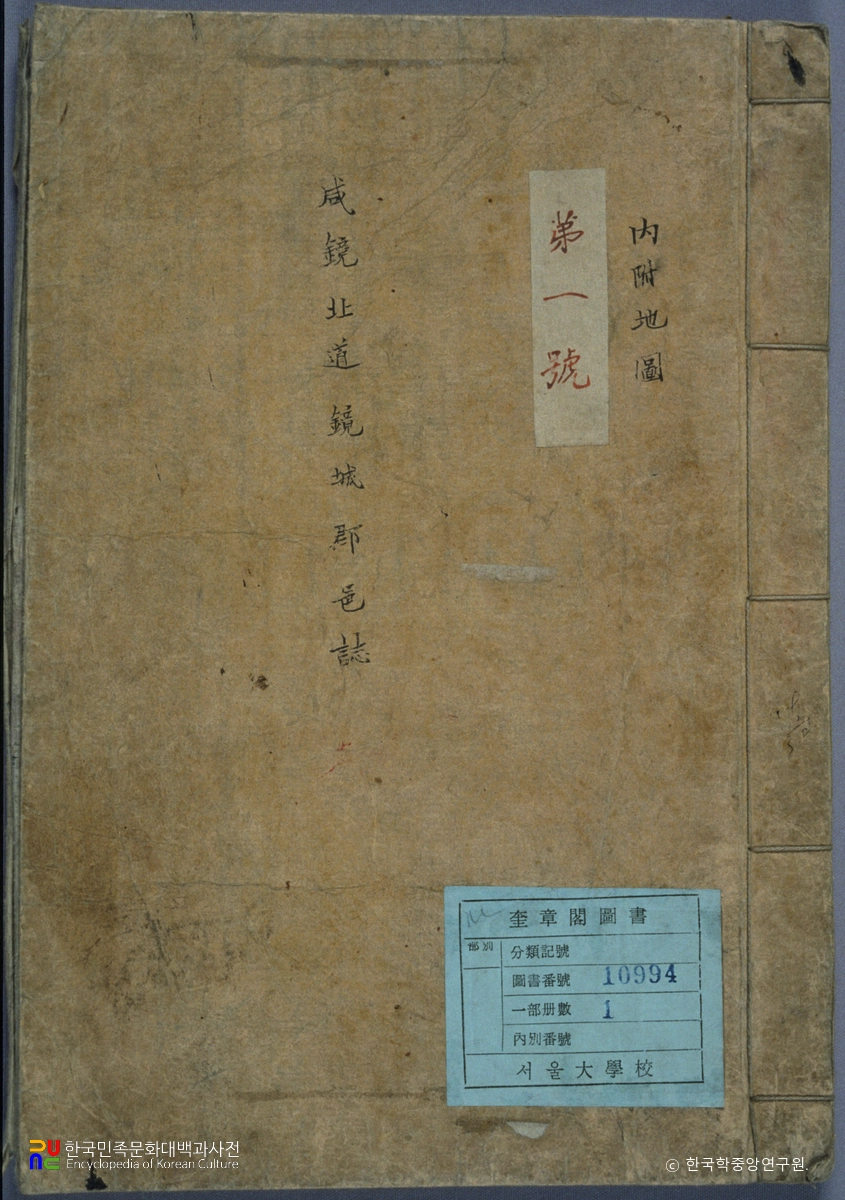 內附地圖
第一號
咸鏡北道鏡城郡邑誌
奎章閣圖書
部別
分類記號
圖書番號 10994
一部册數 1
內別番號
서울大學校
한국민족문화대백과사전
Encyclopedia of Korean Culture
© 한국학중앙연구원.